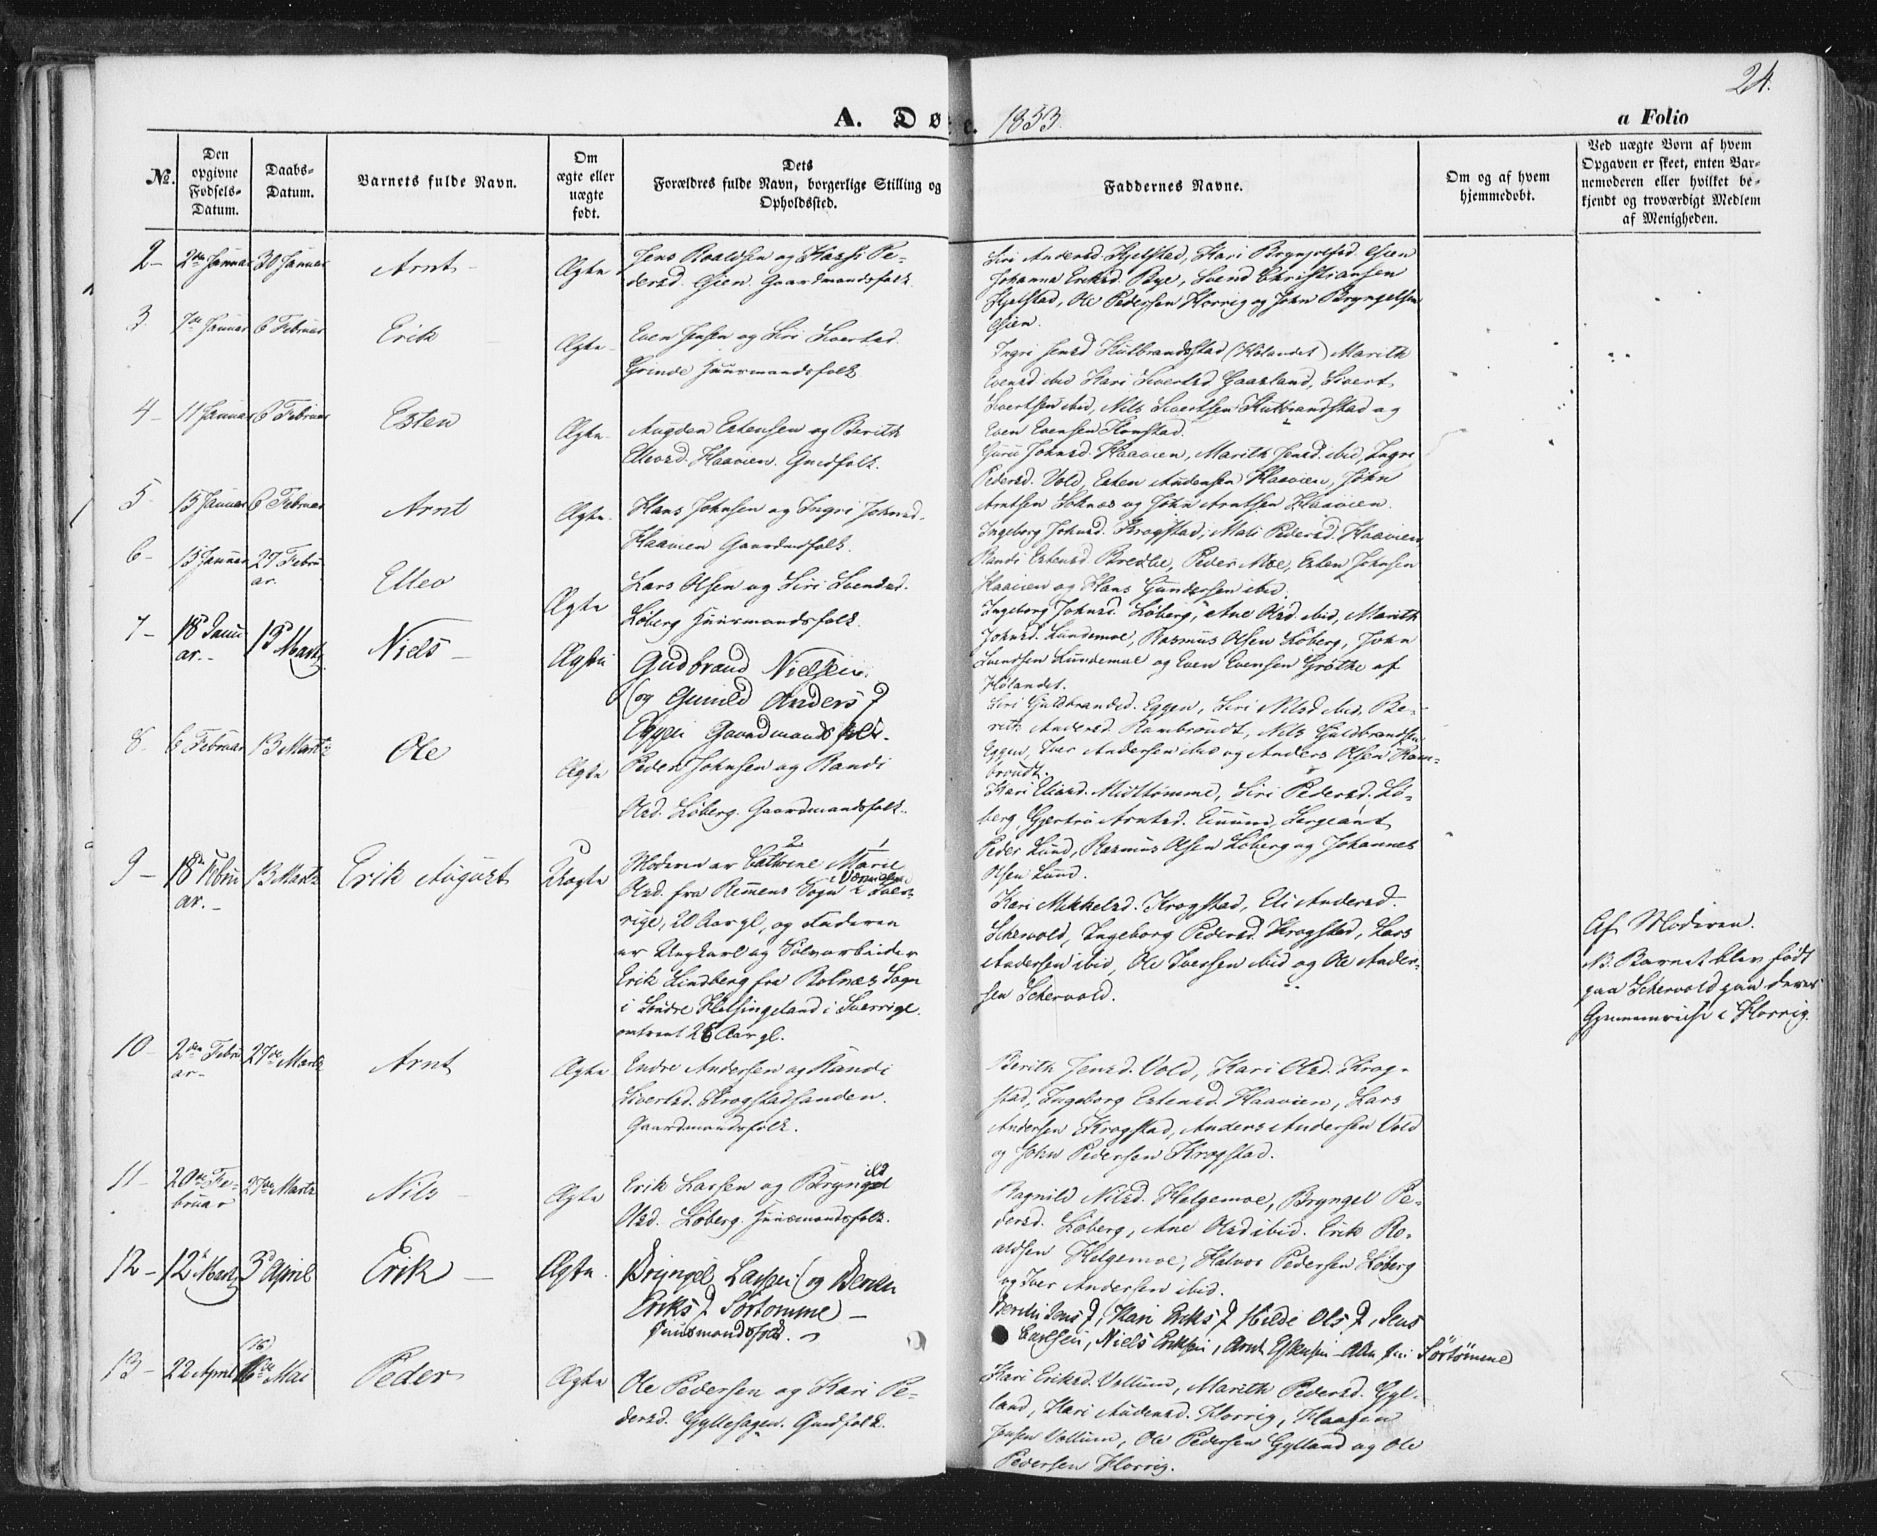 24.
A. Dø e. 1853.
a Folio
№.
Den opgivne Fødsels-Datum.
Daabs-Datum.
Barnets fulde Navn.
Om ægte eller uægte født.
Dets Forældres fulde Navn, borgerlige Stilling og Opholdssted.
Faddernes Navne.
Om og af hvem hjemmedøbt.
Ved uægte Børn af hvem Opgaven er skeet, enten Barnemoderen eller hvilket bekjendt og troværdigt Medlem af Menigheden.
2- 2de Januar 30 Januar Arnt - Ægte
Jens Roaldsen og Pe-
dersd. Øien. Gaardmandsfolk.
Siri Andersd. Hjelstad, Kari Bryngelsd. Øien
Johanna Eriksd. Bye, Svend Christiansen
Hjelstad, Ole Pedersen Horrig og John Bryngelsen
Øien.
3 7de Januar 6 Februar Erik Ægte
Even Jensen og Siri Sivertsd.
Grinde Huusmandsfolk
Ingri Jensd. Hulbrandsstad (Hølandet) Marith
Evensd. ibid Kari Sivertsd. Gaasland, Sivert
Sivertsen ibid, Nils Sivertsen Hulbrandstad og
Even Evensen Honstad.
4- 11 Januar 6 Februar Esten Ægte
Audden Estensen og Berith
Ellevsd. Haavien. Gmdfolk.
Guru Johnsd. Haavien, Marith Jensd. ibid, Ingri
Pedersd. Vold, Esten Audensen Haavien, John
Arntsen Soknes og John Arntsen Haavien.
5- 15 Januar 6 Februar Arnt Ægte
Hans Johnsen og Ingri Johnsd.
Haavien Gaardmdfolk.
Ingeborg Johnsd. Krogstad, Mali Pedersd. Haavien,
Randi Estensd. Bredlie, Peder Moe, Esten Johnsen
Haavien og Hans Gundersen ibid.
6- 15 Januar 27 Febru
ar. Ellev Ægte
Lars Olsen og Siri Svendsd.
Løberg Huusmandsfolk.
Ingeborg Johnsd. Løberg, Ane Olsd. ibid, Marith
Johnsd. Lundemoe, Rasmus Olsen Løberg, John
Svendsen Lundemoe og Even Evensen Grøthe af
Hølandet.
7- 18de Janu
ar.- 13de Martz Niels - Ægte
Gudbrand Nielsen
(og Gunild Andersd
Eggen Gaardmandsfolk.
Siri Guldbrandsd. Eggen, Siri Nilsd ibid, Be-
rith Andersd. Rambroudt, Nils Guldbrandsen
Eggen, Iver Andersen ibid og Anders Olsen Ram-
broudt.
8- 6 Februar 13 Martz Ole Ægte
Peder Johnsen og Randi
Olsd. Løberg. Gaardmandsfolk.
Kari Eliasd. Midttømme, Siri Pedersd. Lø-
berg, Gjertru Arntsd. Lund, Sergeant
Peder Lund, Rasmus Olsen Løberg og Johannes
Olsen Lund.
9- 18de Febru
ar.- 13 Martz Erik August Uægte
Moderen er Cathrine Marie
Olsd. fra Remens Sogn i Sver-
rige, 20 Aar gl., og Faderen
er Ungkarl og Sølvarbeider
Erik Lindberg fra Bolnæs Sogn
i Søndre Helsingeland i Sverrige
omtrent 26 Aar gl.
Kari Mikkelsd. Krogstad, Eli Andersd.
Schervold, Ingeborg Pedersd. Krogstad, Lars
Andersen ibid, Ole Iversen ibid og Ole Ander-
sen Schervold.
Af Moderen.
NB. Barnet blev født
paa Schervold paa deres
Gjennemreise i Horrig.
10- 2den Febru
ar- 27de Martz Arnt Ægte
Endre Andersen og Randi
Sivertsd. Krogstadsanden.
Gaardmandsfolk.
Berith Jensd. Vold, Kari Olsd. Krog-
stad, Ingeborg Estensd. Haavien, Lars
Andersen Krogstad, Anders Andersen Vold
og John Pedersen Krogstad.
11- 20de Fe-
bruar 27de Martz Nils - Ægte
Erik Larsen og Bryngild
Olsd. Løberg. Huusmandsfolk.
Ragnild Nilsd. Helgemoe, Bryngel Pe-
dersd. Løberg, Ane Olsd ibid. Erik Ro-
aldsen Helgemoe, Halvor Pedersen Løberg
og Iver Andersen ibid.
12- 12te Martz 3de April Erik - Ægte
Bryngel Larsen (og Berith
Eriksd Sørtømme -
Huusmandsfolk.
Berith Jensd, Kari Eriksd Hilde Olsd, Jens
Carlsen, Niels Eriksen, Arnt Estensen - Alle fra Sørtømme
13- 22 April (16) 16de Mai Peder Ægte
Ole Pedersen og Kari Pe-
dersd. Gyllehagen. Gmdfolk.
Kari Eriksd. Vollum, Marith Pedersd. Gyl-
land, Kari Audensd. Horrig, Haagen
Jensen Vollum, Ole Pedersen Gylland og Ole
Pedersen Horrig.